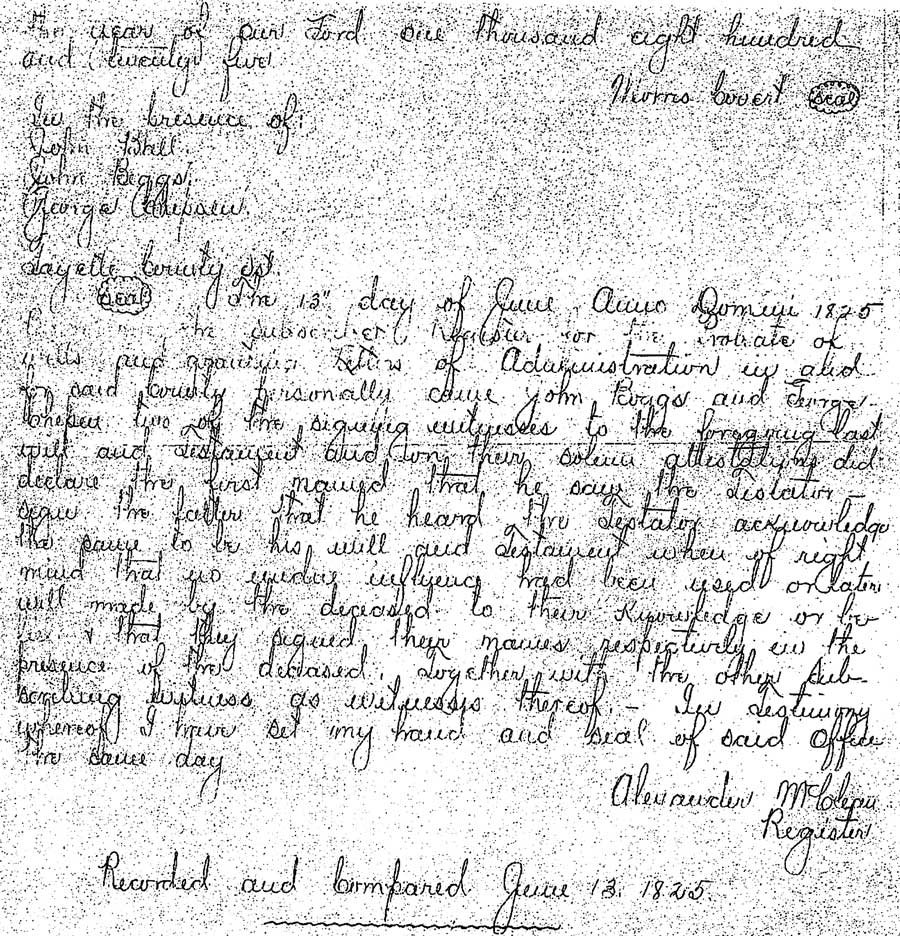 year of our Lord one thousand eight hundred
and twenty five
Morris Covert seal
In the presence of:
John Bell.
John Boggs.
George
Fayette County Sst.
seal The 13" day of June Anno Domini 1825
the subscriber, Register for the probate of
wills and granting Letters of Administration in and
for said County personally came John Boggs and George
two of the signing witnesses to the foregoing last
will and Testament and on their solemn attestations did
declare the first named that he saw the Testator —
sign the latter that he heard the Testator acknowledge
the same to be his will and Testament when of right
mind that no undue influence had been used or later
will made by the deceased to their knowledge or be
lief & that they signed their names respectively in the
presence of the deceased. Together with the other sub-
scribing witness as witnesses thereof. — In Testimony
whereof I have set my hand and seal of said Office
the same day
Alexander McClean
Register
Recorded and Compared June 13. 1825.